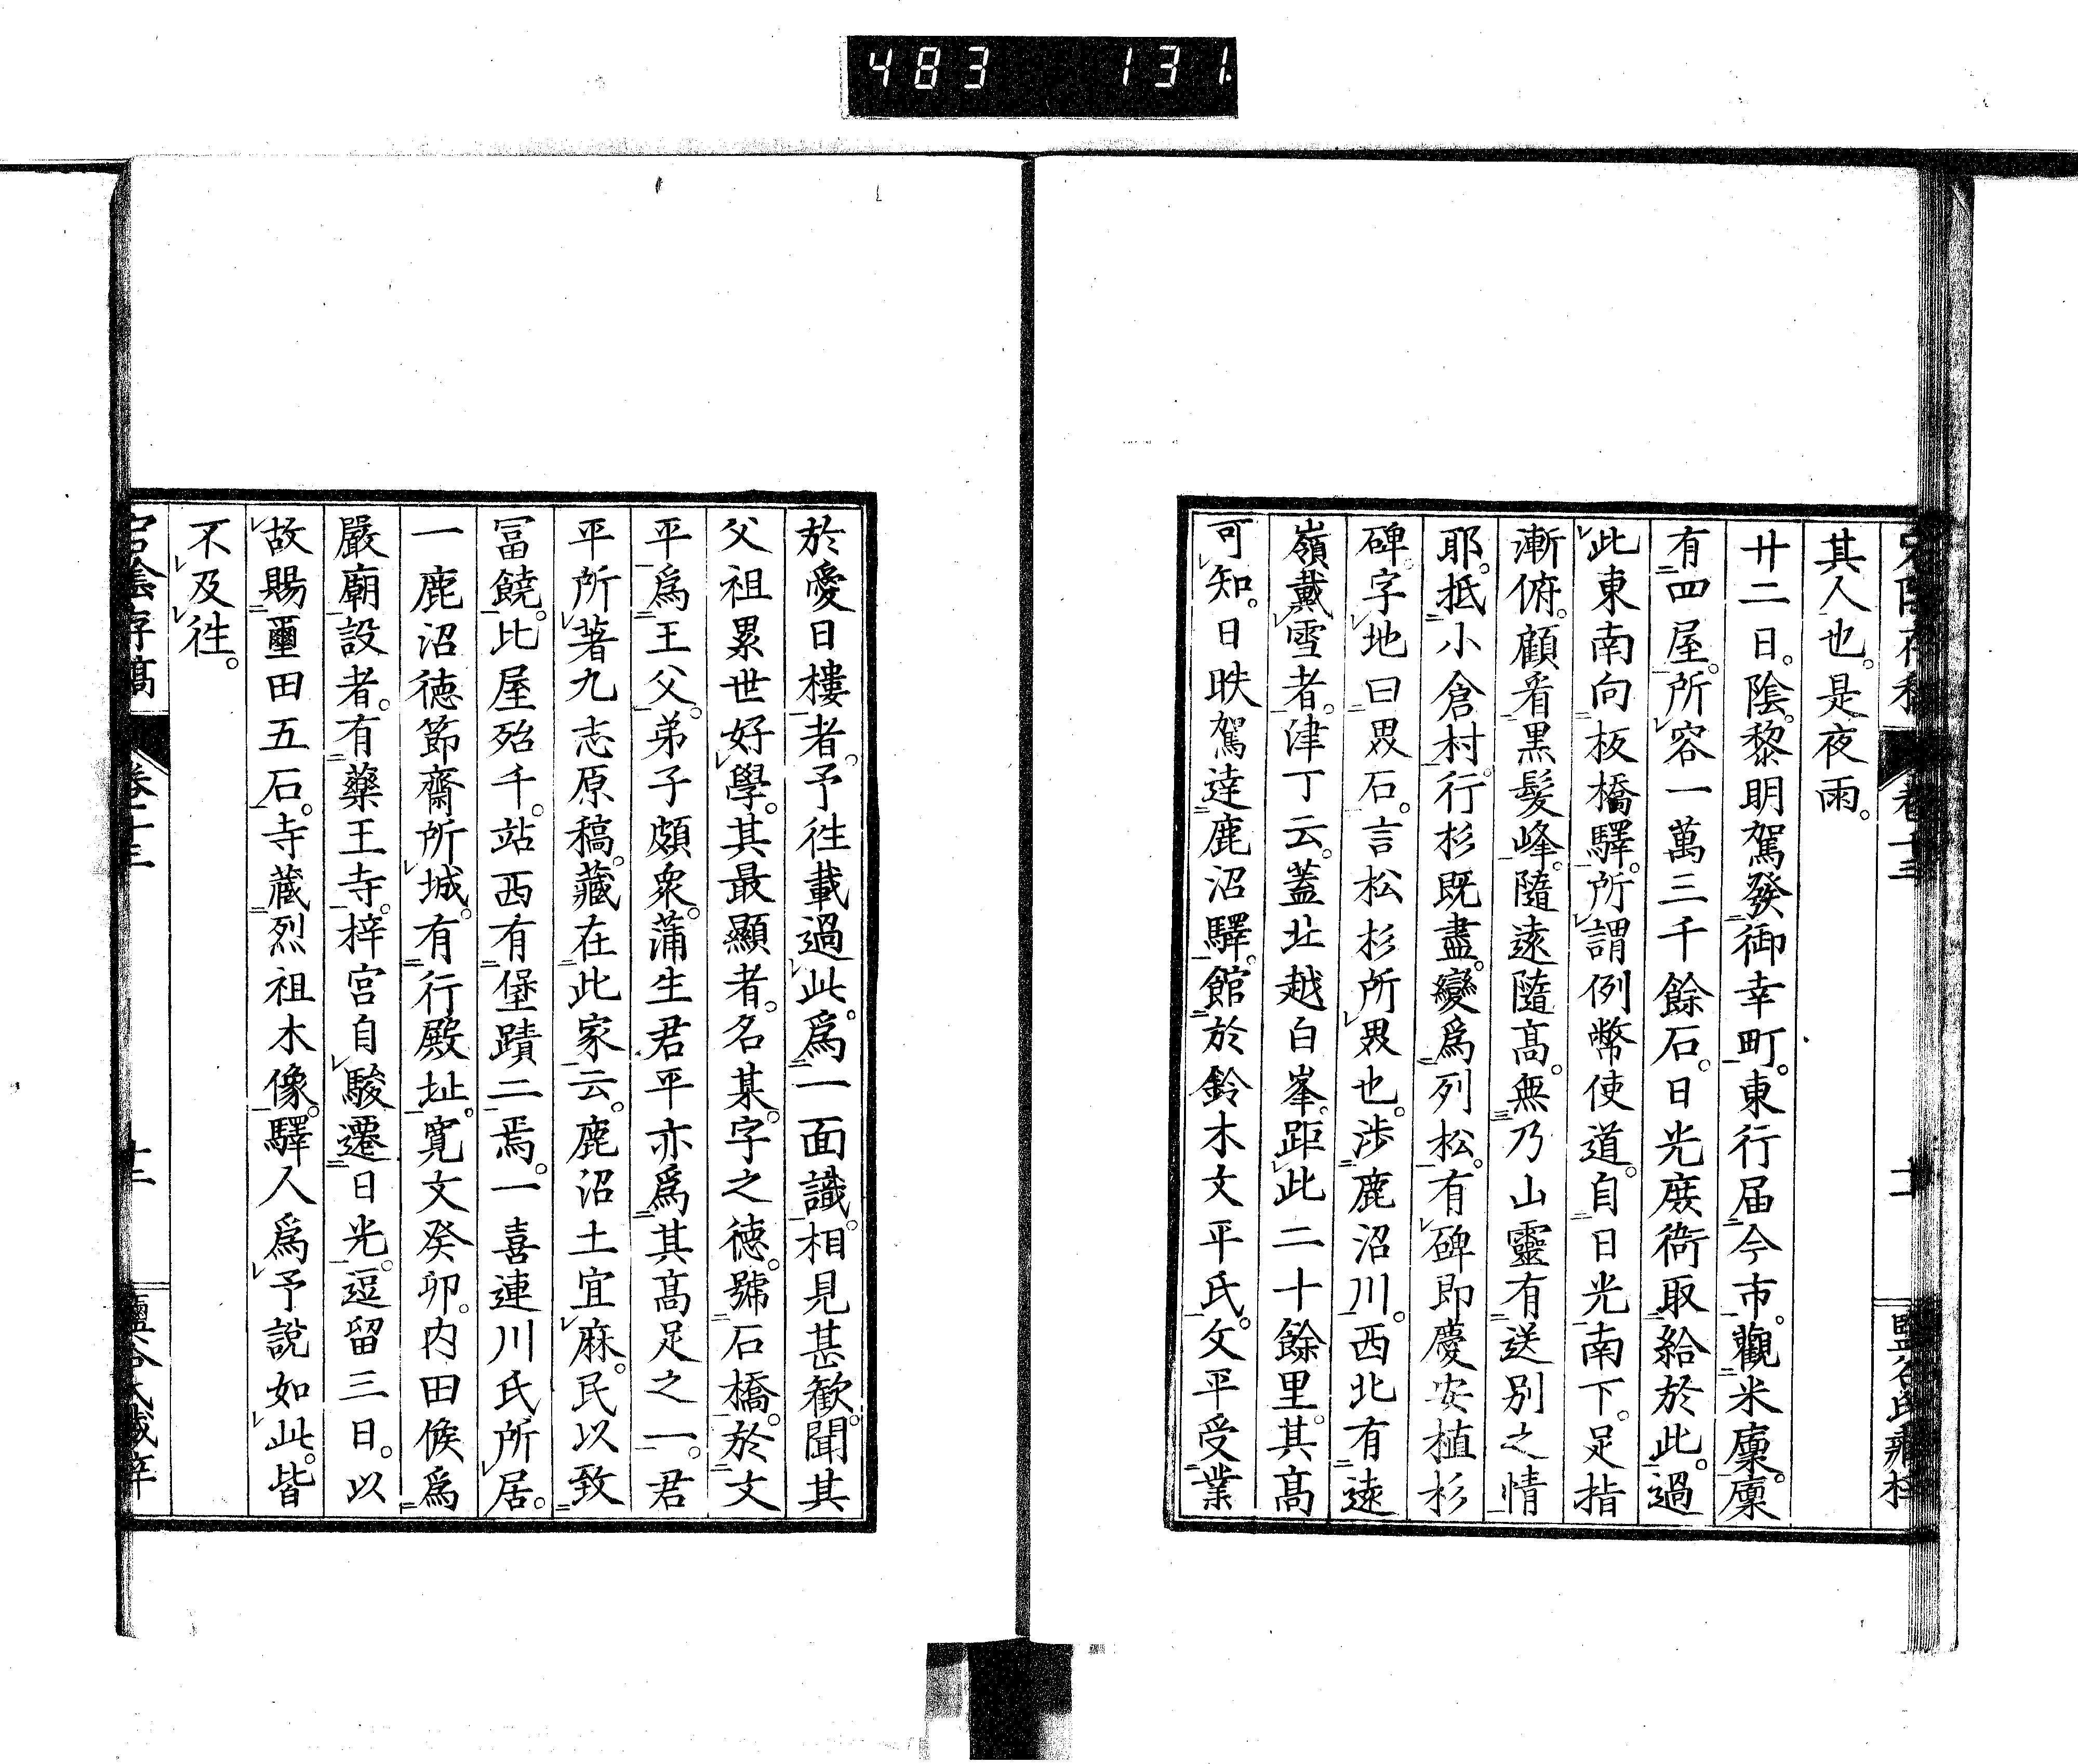 483 131
其人也。是夜雨。
廿二日。陰。黎明駕發御幸町。東行届今市。觀米廩。廩
有四屋。所容一萬三千餘石。日光廣衙取給於此。過
此東南向板橋驛。所謂例幣使道。自日光南下。足指
漸俯。顧看黒髮峰。隨遠隨高。無乃山靈有送别之情
耶。抵小倉村。行杉既盡。變爲列松。有碑即慶安植杉
碑字地曰畏石。言松杉所畏也。渉鹿沼川。西北有遠
嶺戴雪者。津丁云。蓋北越白峯。距此二十餘里。其髙
可知。日昳駕達鹿沼驛。館於鈴木文平氏。文平受業
於愛日樓者。予往載過此。爲一面識。相見甚歓。聞其
父祖累世好學。其最顯者。名某。字之德。號石橋。於文
平爲王父。弟子頗衆。蒲生君平亦爲其髙足之一。君
平所著九志原稿。藏在此家云。鹿沼土宜麻。民以致
冨饒。比屋殆千。站西有堡蹟二焉。一喜連川氏所居。
一鹿沼德節齋所城。有行殿址。寛文癸卯。内田侯爲
嚴廟設者。有藥王寺。梓宮自駿遷日光。逗留三日。以
故賜璽田五石。寺藏烈祖木像。驛人爲予說如此。皆
不及往。